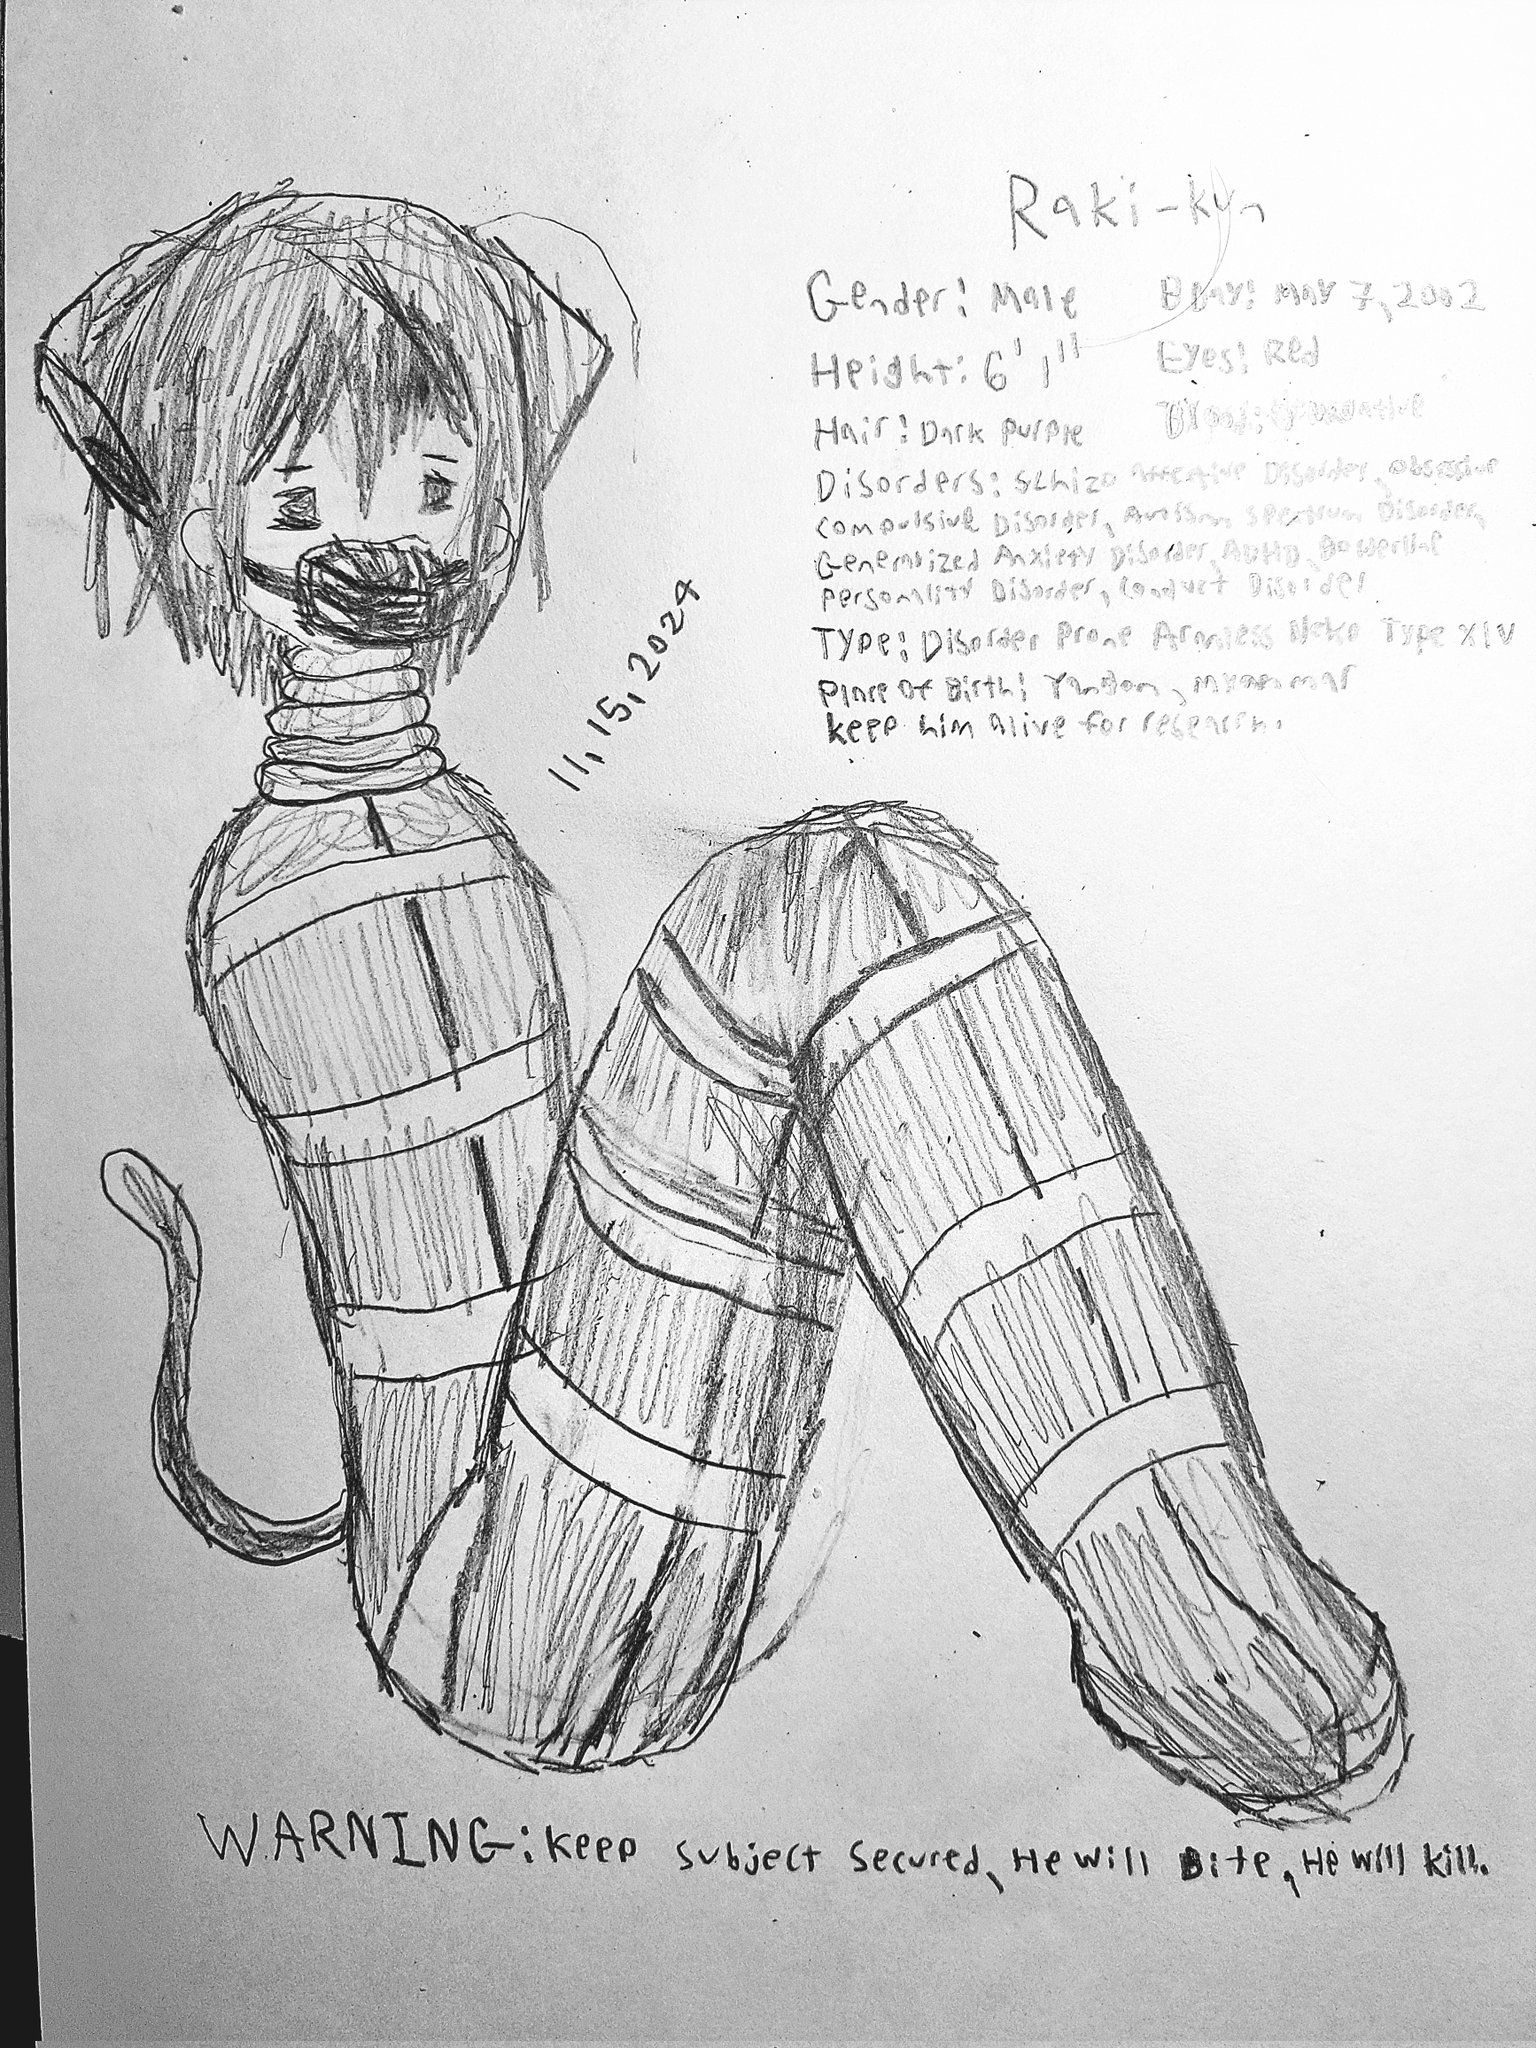 Raki-kun
Gender: Male
BDay: May 7, 2002
Height: 6'1"
Eyes: Red
Hair: Dark Purple
Disorders: Schizo Affective Disorder, Obsessive
Compulsive Disorder, Autism Spectrum Disorder,
Generalized Anxiety Disorder, ADHD, Borderline
Personality Disorder, Conduct Disorder
Type: Disorder Prone Armless Neko Type XIV
Place Of Birth: Yangon, Myanmar
Keep him alive for research.
11, 15, 2024
WARNING: Keep Subject Secured, He Will Bite, He Will Kill.